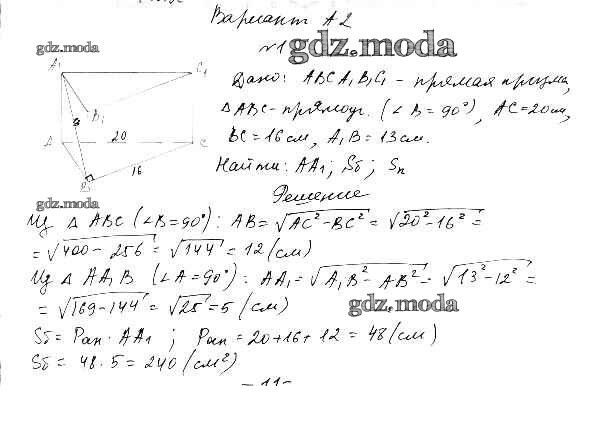 Вариант А2
gdz.moda
№1 gdz.moda
A₁
C₁
B₁
A
20
C
16
B
Дано: ABCA₁B₁C₁ - прямая призма,
△ABC - прямоуг. (∠B = 90°), AC = 20 см,
BC = 16 см, A₁B = 13 см.
Найти: AA₁; Sб; Sп
gdz.moda
Решение
Из △ ABC (∠B = 90°): AB = √AC² - BC² = √20² - 16² =
= √400 - 256 = √144 = 12 (см)
Из △ AA₁B (∠A = 90°): AA₁ = √A₁B² - AB² = √13² - 12² =
= √169 - 144 = √25 = 5 (см)
gdz.moda
Sб = Pосн · AA₁ ; Pосн = 20 + 16 + 12 = 48 (см)
Sб = 48 · 5 = 240 (см²)
- 11 -